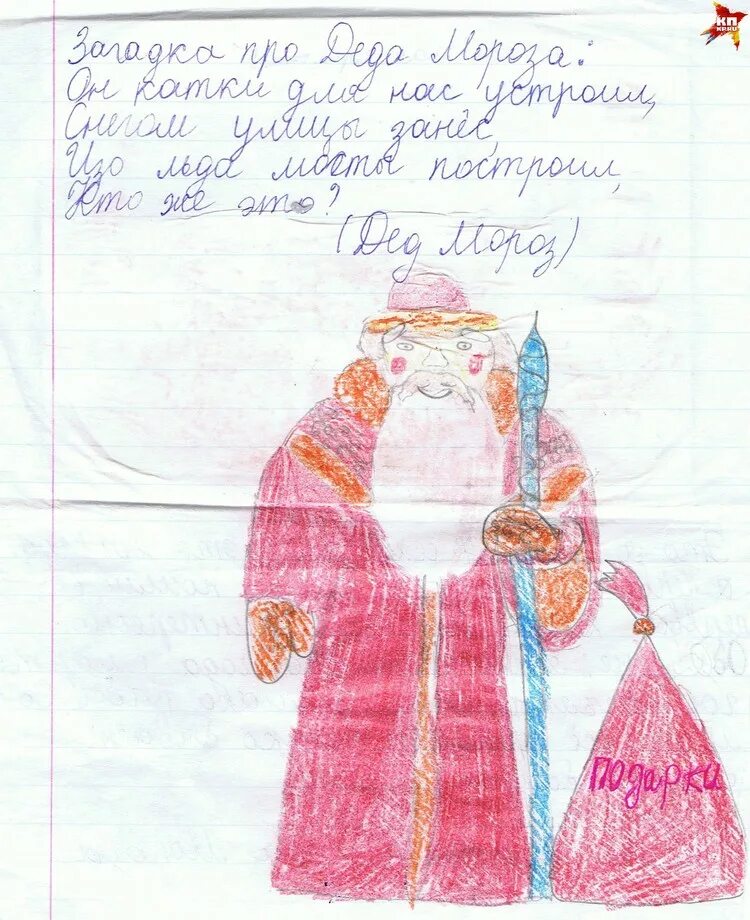 Загадка про Деда Мороза:
Он катки для нас устроил,
Снегом улицы занёс,
Изо льда мосты построил,
Кто же это?
(Дед Мороз)
Подарки
КП
KP.RU